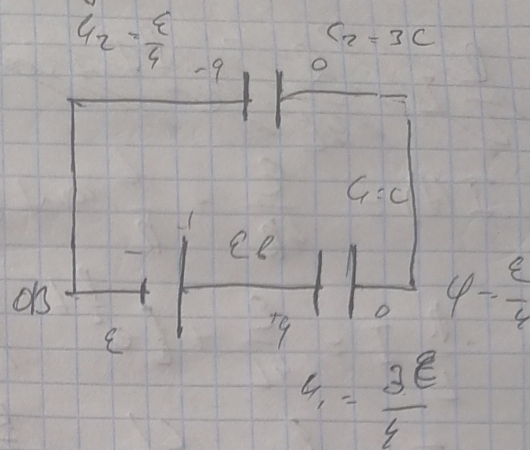 U₂ = ε/4
C₂ = 3C
-q
0
C₁ = C
-
εB
0B
+q
0
φ = ε/4
ε
U₁ = 3ε/4